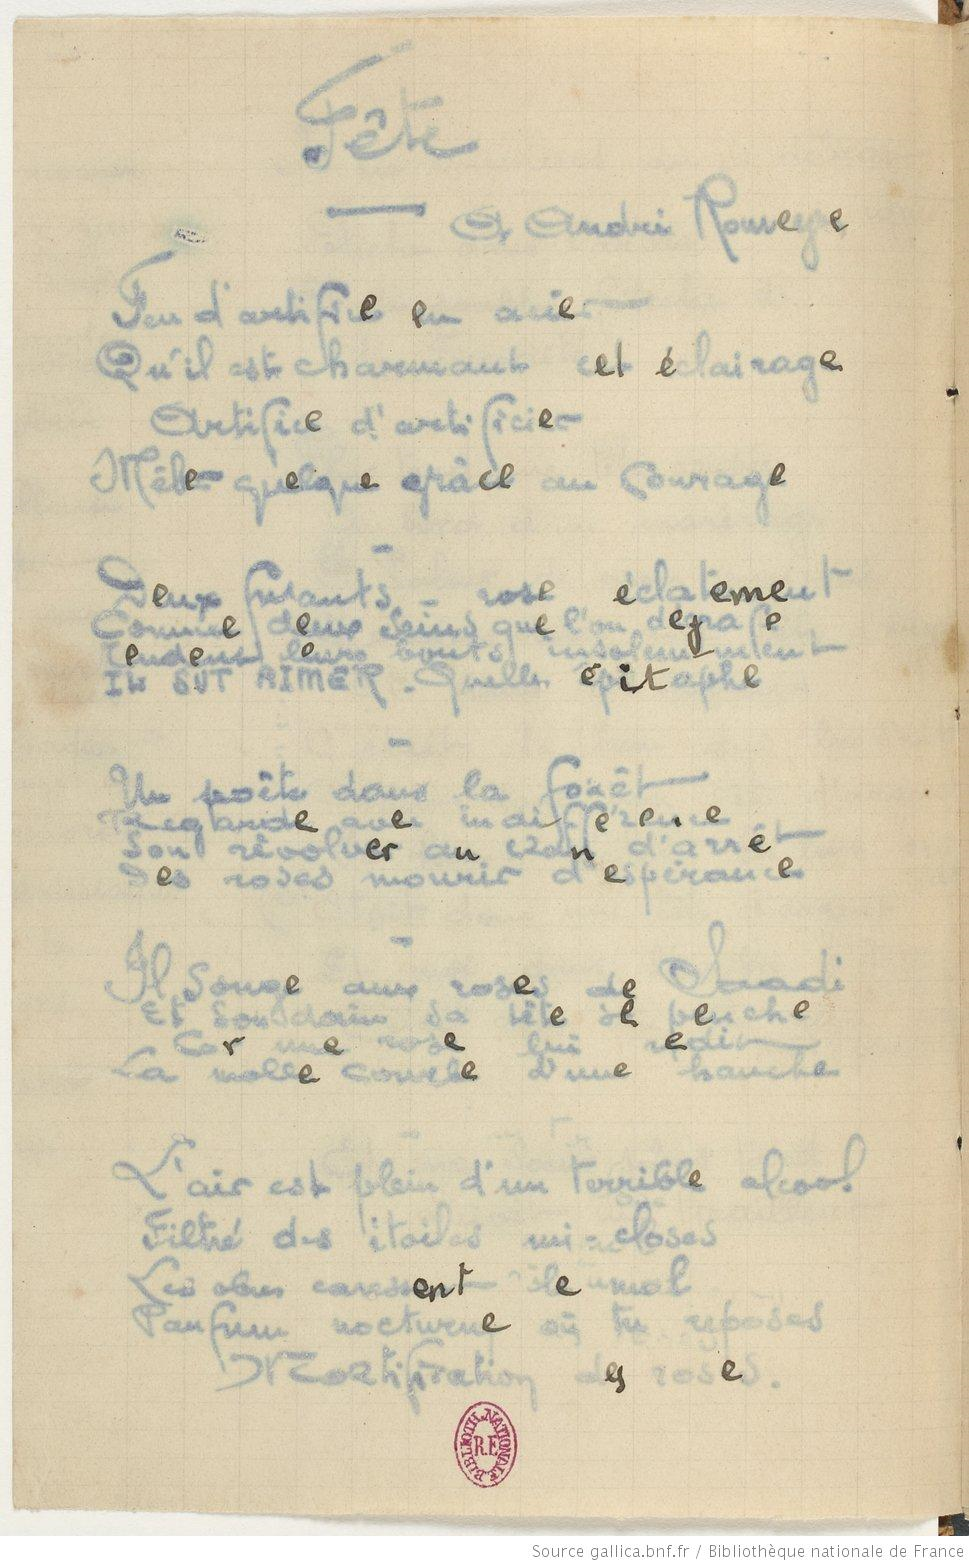 Fête
A André Rouveyre
Feu d'artifice en acier
Qu'il est charmant cet éclairage
Artifice d'artificier
Mêler quelque grâce au Courage
Deux fusants rose éclatement
Comme deux seins que l'on dégrafe
Tendent leurs bouts insolemment
IL SUT AIMER. Quelle épitaphe
Un poète dans la forêt
Regarde avec indifférence
Son révolver au cran d'arrêt
Des roses mourir d'espérance
Il Songe aux roses de Saadi
Et soudain sa tête se penche
Car une rose lui redit
La molle courbe d'une hanche
L'air est plein d'un terrible alcool
Filtré des étoiles mi-closes
Les obus caressent le mol
Parfum nocturne où tu reposes
Mortification des roses.
BIBLIOTH. NATIONALE
R.F.
Source gallica.bnf.fr / Bibliothèque nationale de France